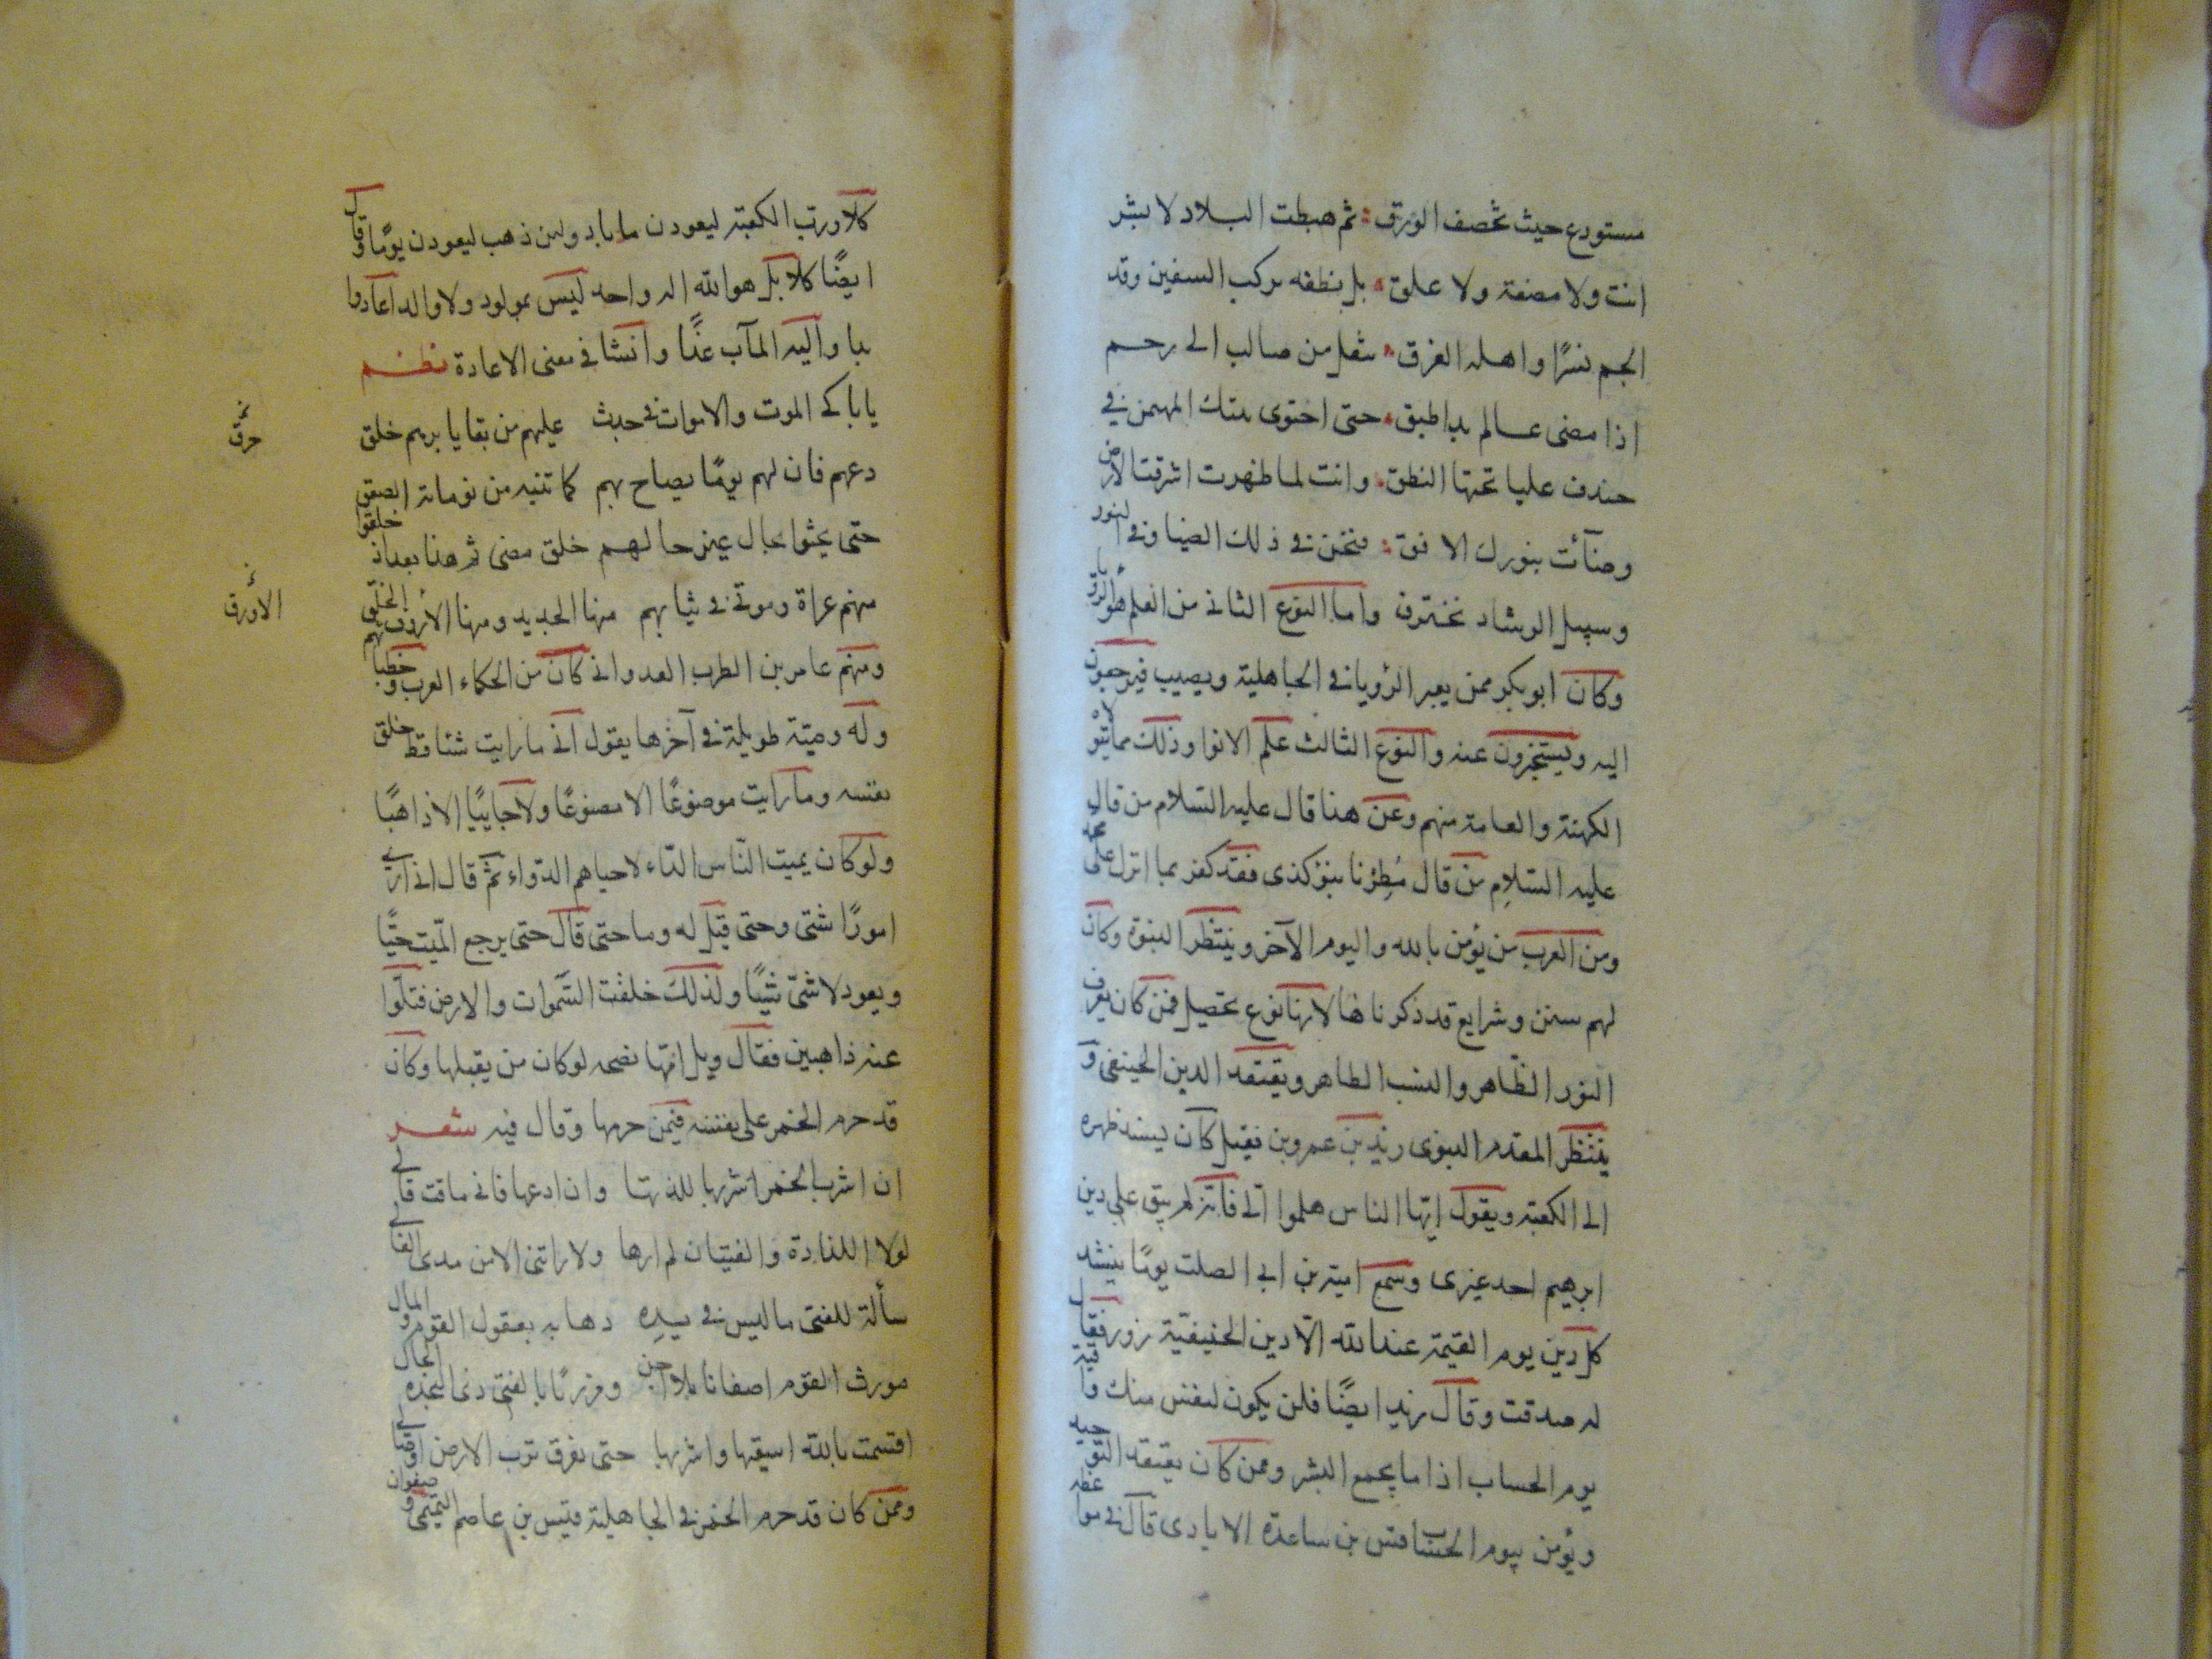 مستودع حيث تخصف الورق ثم هبطت البلاد لا بشر
انت ولا مضغة ولا علق بل نطفه تركب السفين وقد
الجم نسرًا واهله الغرق تنقل من صالب الى رحم
اذا مضى عالم بدا طبق حتى احتوى بيتك المهيمن في
خندف عليا تحتها النطق وانت لما ظهرت اشرقت الارض
وضآئت بنورك الافق فنحن في ذلك الضيا وفي النور
وسبيل الرشاد نخترق واما النوع الثاني من العلم هو الرؤيا
وكان ابو بكر ممن يعبر الرؤيا في الجاهلية ويصيب فيرجعون
اليه ويستخبرون عنه والنوع الثالث علم الانوا وذلك مما يتولاه
الكهنة والعامة منهم وعن هنا قال عليه السلام من قال
عليه السلام من قال مُطِرْنا بنؤ كذى فقد كفر بما انزل على محمد
ومن العرب من يؤمن بالله واليوم الآخر وينتظر النبوة وكان
لهم سنن وشرايع قد ذكرناها لانها نوع تحصيل فمن كان يعرف
النور الظاهر والنسب الطاهر ويعتقد الدين الحنيفى و
ينتظر المقدم النبوى زيد بن عمرو بن نفيل كان يسند ظهره
الى الكعبة ويقول ايّها الناس هلموا الّى فانّه لم يبق على دين
ابرهيم احد غيرى وسمع امية بن ابي الصلت يومًا ينشد
كل دين يوم القيمة عند الله الّا دين الحنيفيّة زور فقال
له صدقت وقال زيد ايضًا فلن يكون لنفس منك واقية
يوم الحساب اذا ما يجمع البشر وممن كان يعتقد التوحيد
ويؤمن بيوم الحساب قس بن ساعدة الايادى قال في مواعظه
كلا ورب الكعبة ليعودن ما باد ولئن ذهب ليعودن يومًا وقال
ايضًا كلا بل هو الله اله واحد ليس بمولود ولا والد اعاد وا
بدا واليه المآب غدًا وانشا في معنى الاعادة نظم
يا باكى الموت والاموات في جدث عليهم من بقايا بزهم خلق
خرق
دعهم فان لهم يومًا يصاح بهم كما تنبه من نوماته الصعق
حتى يجئوا بحال غير حالهم خلق مضى ثم هذا بعد اذ خلقوا
منهم عراة وموتى في ثيابهم منها الجديد ومنها الأزرق الخلق
الأورق
ومنهم عامر بن الظرب العدوانى كان من الحكماء العرب وخطبائهم
وله وصيّة طويلة في آخرها يقول انى ما رايت شئا قط خلق
نفسه وما رايت موضوعًا الا مصنوعًا ولا جاييًا الا ذاهبًا
ولو كان يميت النّاس الدّاء لاحياهم الدّواء ثمّ قال انى ارى
امورًا شتى وحتى قيل له وما حتى قال حتى يرجع الميّت حيًّا
ويعود لا شئ شيئًا ولذلك خلقت السّموات والارض فتلّوا
عنه ذاهبين فقال ويل انها نصحه لو كان من يقبلها وكان
قد حرم الخمر على نفسه فيمن حرمها وقال فيه شعر
ان اشرب الخمر اشربها للذتها وان ادعها فانى ماقت قالى
لولا اللذاذة والفتيان لم ارها ولا راتنى الا من مدى الغالى
سألة للفتى ما ليس في يده ذهابه بعقول القوم والمال
مورث القوم اضغانا بلا احن ومزرئًا بالفتى ذى النجده الحال
اقسمت بالله اسيقها واشربها حتى يفرق ترب الارض اوصالى
وممن كان قد حرم الخمر في الجاهلية قيس بن عاصم التميمى وصفوان